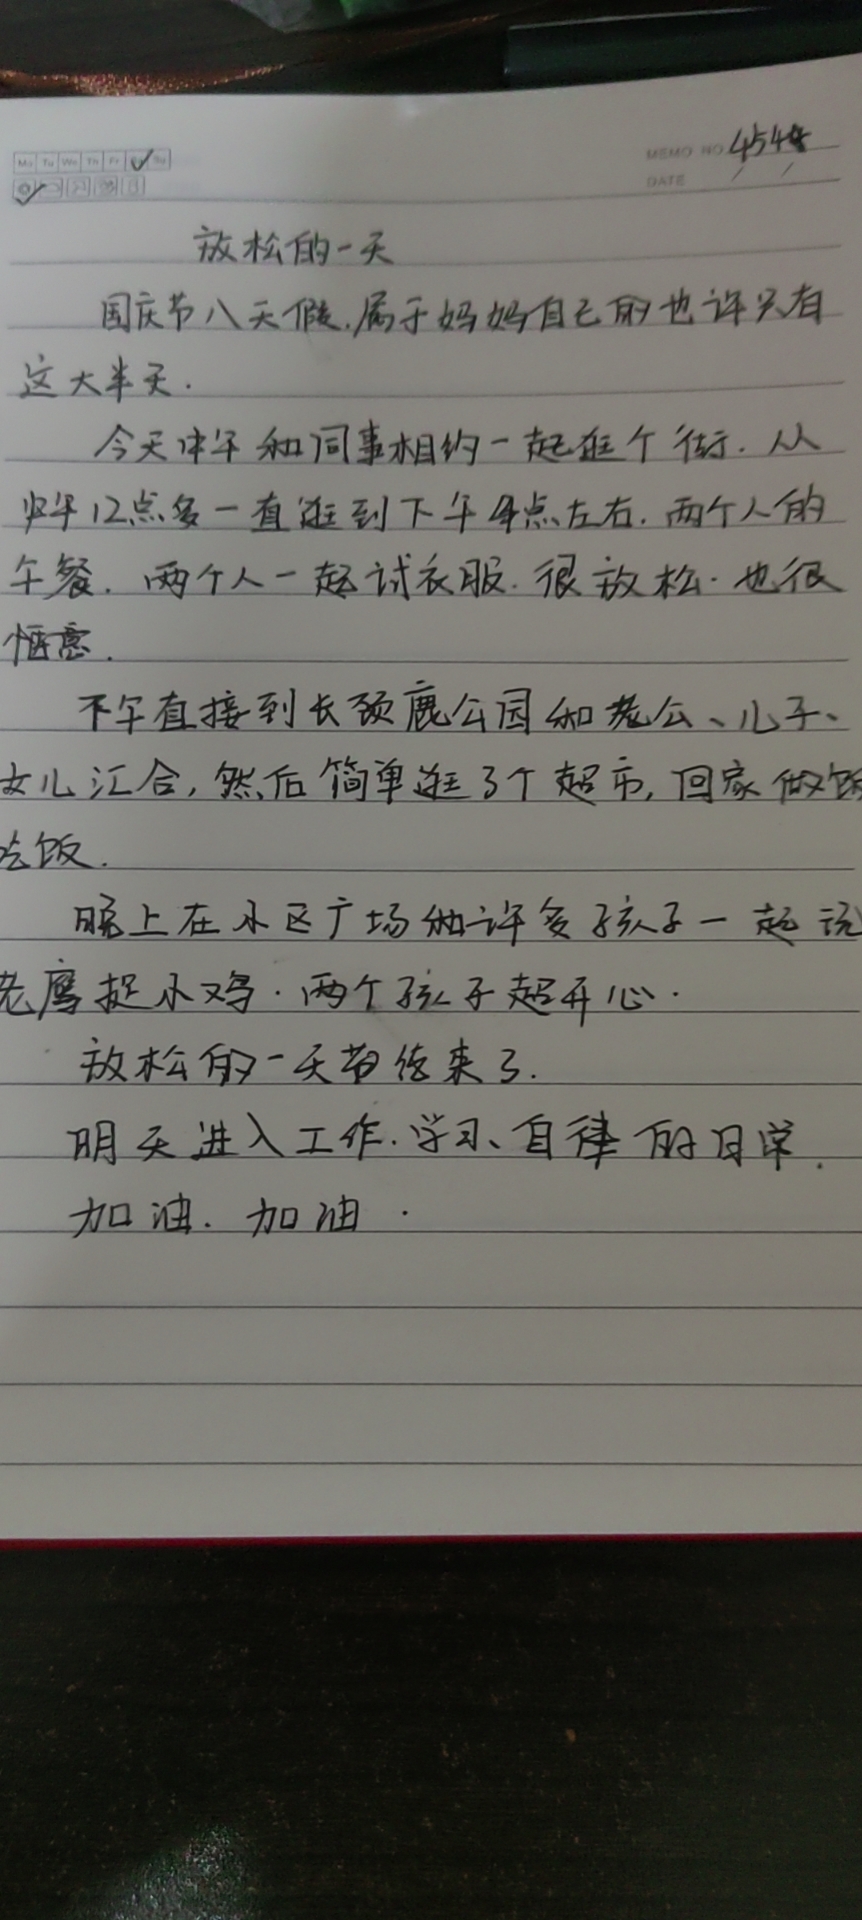 Mo Tu We Th Fr Su
MEMO NO. 454
DATE / /
放松的一天
国庆节八天假.属于妈妈自己的也许只有
这大半天.
今天中午和同事相约一起逛个街.从
中午12点多一直逛到下午4点左右.两个人的
午餐.两个人一起试衣服.很放松.也很
惬意.
下午直接到长颈鹿公园和老公、儿子、
女儿汇合,然后简单逛了个超市,回家做饭
吃饭.
晚上在小区广场和许多孩子一起玩
老鹰捉小鸡.两个孩子超开心.
放松的一天节结束了.
明天进入工作.学习、自律的日常.
加油.加油.